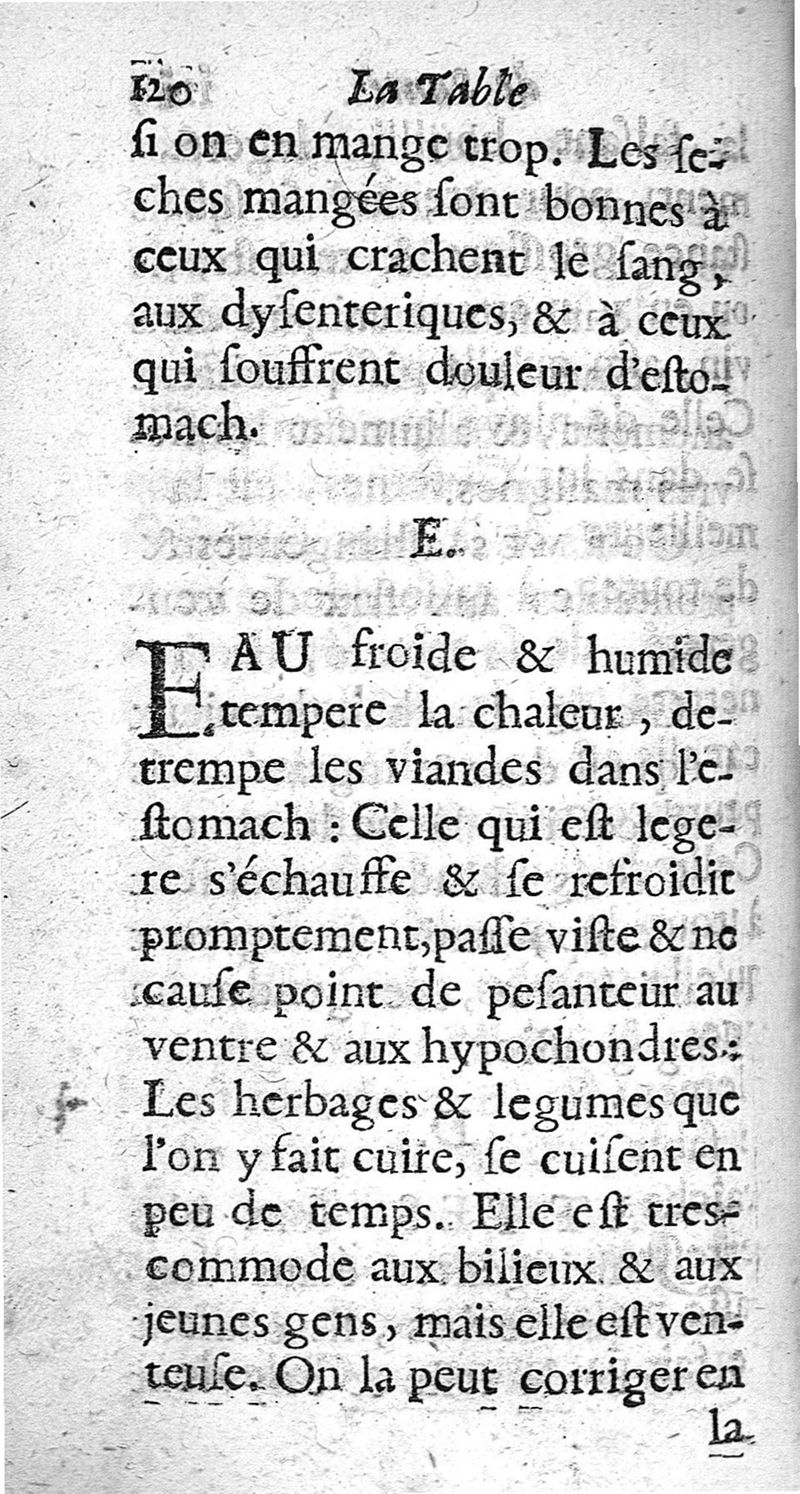 120 La Table
ſi on en mange trop. Les ſe-
ches mangées ſont bonnes à
ceux qui crachent le ſang,
aux dyſenteriques, & à ceux
qui ſouffrent douleur d'eſto-
mach.
E.
EAU froide & humide
tempere la chaleur, de-
trempe les viandes dans l'e-
ſtomach : Celle qui eſt lege-
re s'échauffe & ſe refroidit
promptement, paſſe viſte & ne
cauſe point de peſanteur au
ventre & aux hypochondres :
Les herbages & legumes que
l'on y fait cuire, ſe cuiſent en
peu de temps. Elle eſt tres-
commode aux bilieux & aux
jeunes gens, mais elle eſt ven-
teuſe. On la peut corriger en
la